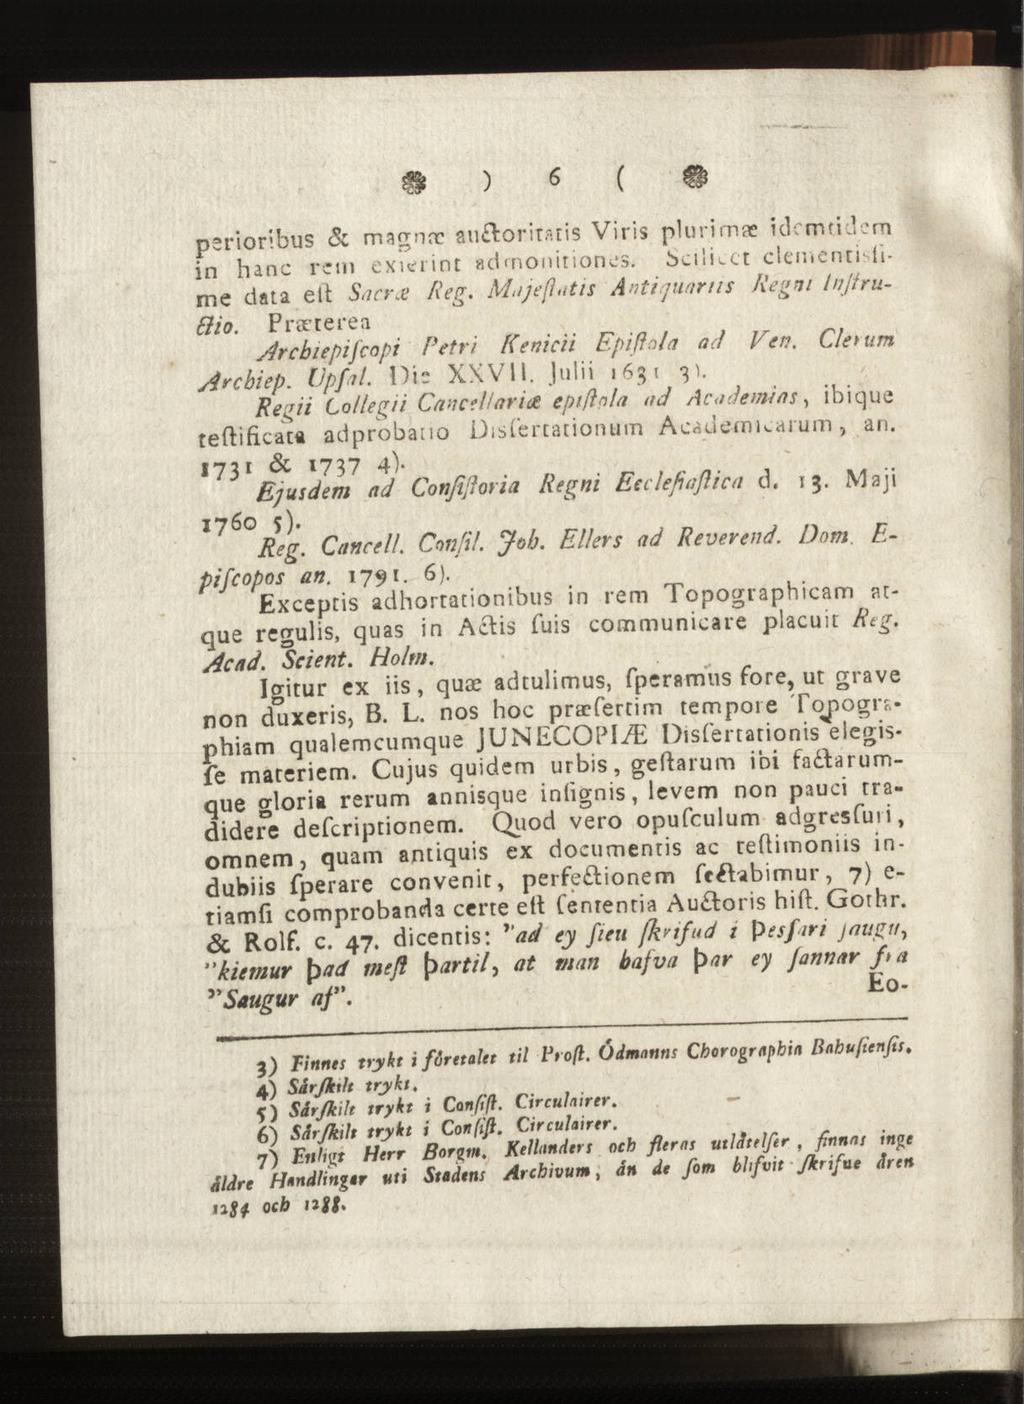 ) 6 (
perioribus & magnæ auctoritatis Viris plurimæ idemtidem
in hanc rem exierint admonitiones. Scilicet clementisſi-
me data eſt Sacræ Reg. Majeſtatis Antiquariis Regni Inſtru-
ctio. Præterea
Archiepiſcopi Petri Kenicii Epiſtola ad Ven. Clerum
Archiep. Upſal. Die XXVII. Julii 1631 3).
Regii Collegii Cancellariæ epiſtola ad Academias, ibique
teſtificata adprobatio Disſertationum Academicarum, an.
1731 & 1737 4).
Ejusdem ad Conſiſtoria Regni Eccleſiaſtica d. 13. Maji
1760 5).
Reg. Cancell. Conſil. Joh. Ellers ad Reverend. Dom. E-
piſcopos an. 1791. 6).
Exceptis adhortationibus in rem Topographicam at-
que regulis, quas in Actis ſuis communicare placuit Reg.
Acad. Scient. Holm.
Igitur ex iis, quæ adtulimus, ſperamus fore, ut grave
non duxeris, B. L. nos hoc præſertim tempore Topogra-
phiam qualemcumque JUNECOPIÆ Disſertationis elegis-
ſe materiem. Cujus quidem urbis, geſtarum ibi factarum-
que gloria rerum annisque inſignis, levem non pauci tra-
didere deſcriptionem. Quod vero opuſculum adgresſuri,
omnem, quam antiquis ex documentis ac teſtimoniis in-
dubiis ſperare convenit, perfectionem ſectabimur, 7) e-
tiamſi comprobanda certe eſt ſententia Auctoris hiſt. Gothr.
& Rolf. c. 47. dicentis: ”ad ey ſieu ſkrifud i þesſari ſaugu,
”kiemur þad meſt þartil, at man hafva þar ey ſannar fra
”Saugur af”.
Eo-
3) Finnes trykt i företalet til Proſt. Ödmanns Chorographia Bahuſienſis.
4) Särſkilt trykt.
5) Särſkilt trykt i Conſiſt. Circulairer.
6) Särſkilt trykt i Conſiſt. Circulairer.
7) Enligt Herr Borgm. Kellanders och fleras utlåtelſer, finnas inge
äldre Handlingar uti Stadens Archivum, än de ſom blifvit ſkrifne åren
1284 och 1288.